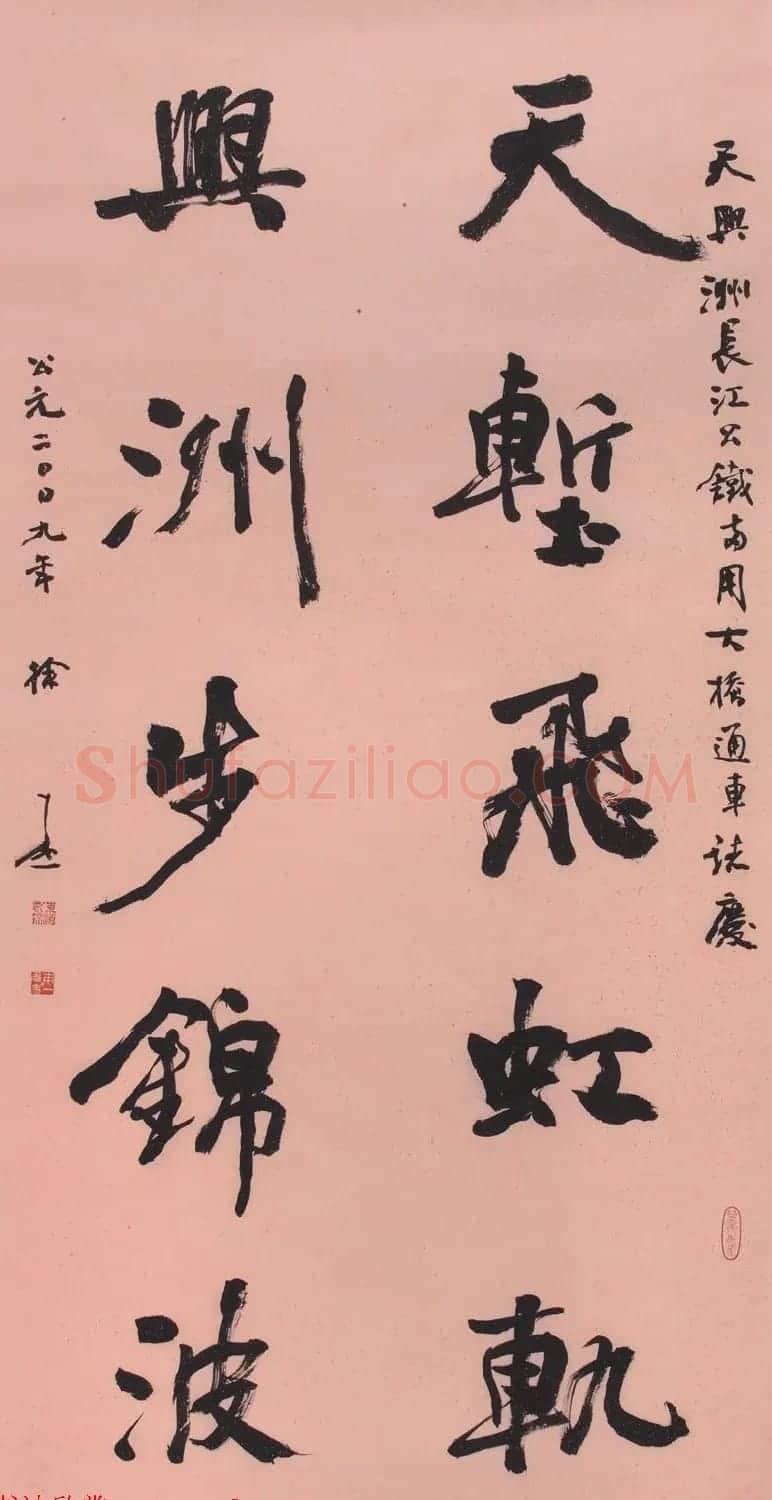 天興洲長江公鐵兩用大橋通車誌慶
天塹飛虹軌
興洲步錦波
公元二〇〇九年 徐
Shufaziliao.com